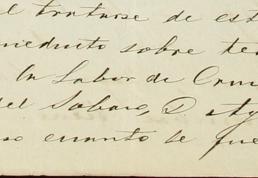 l tratarse de est
niducto sobre te
la Labor de Cru
del Sabao, D. Ag
so cuanto le fue